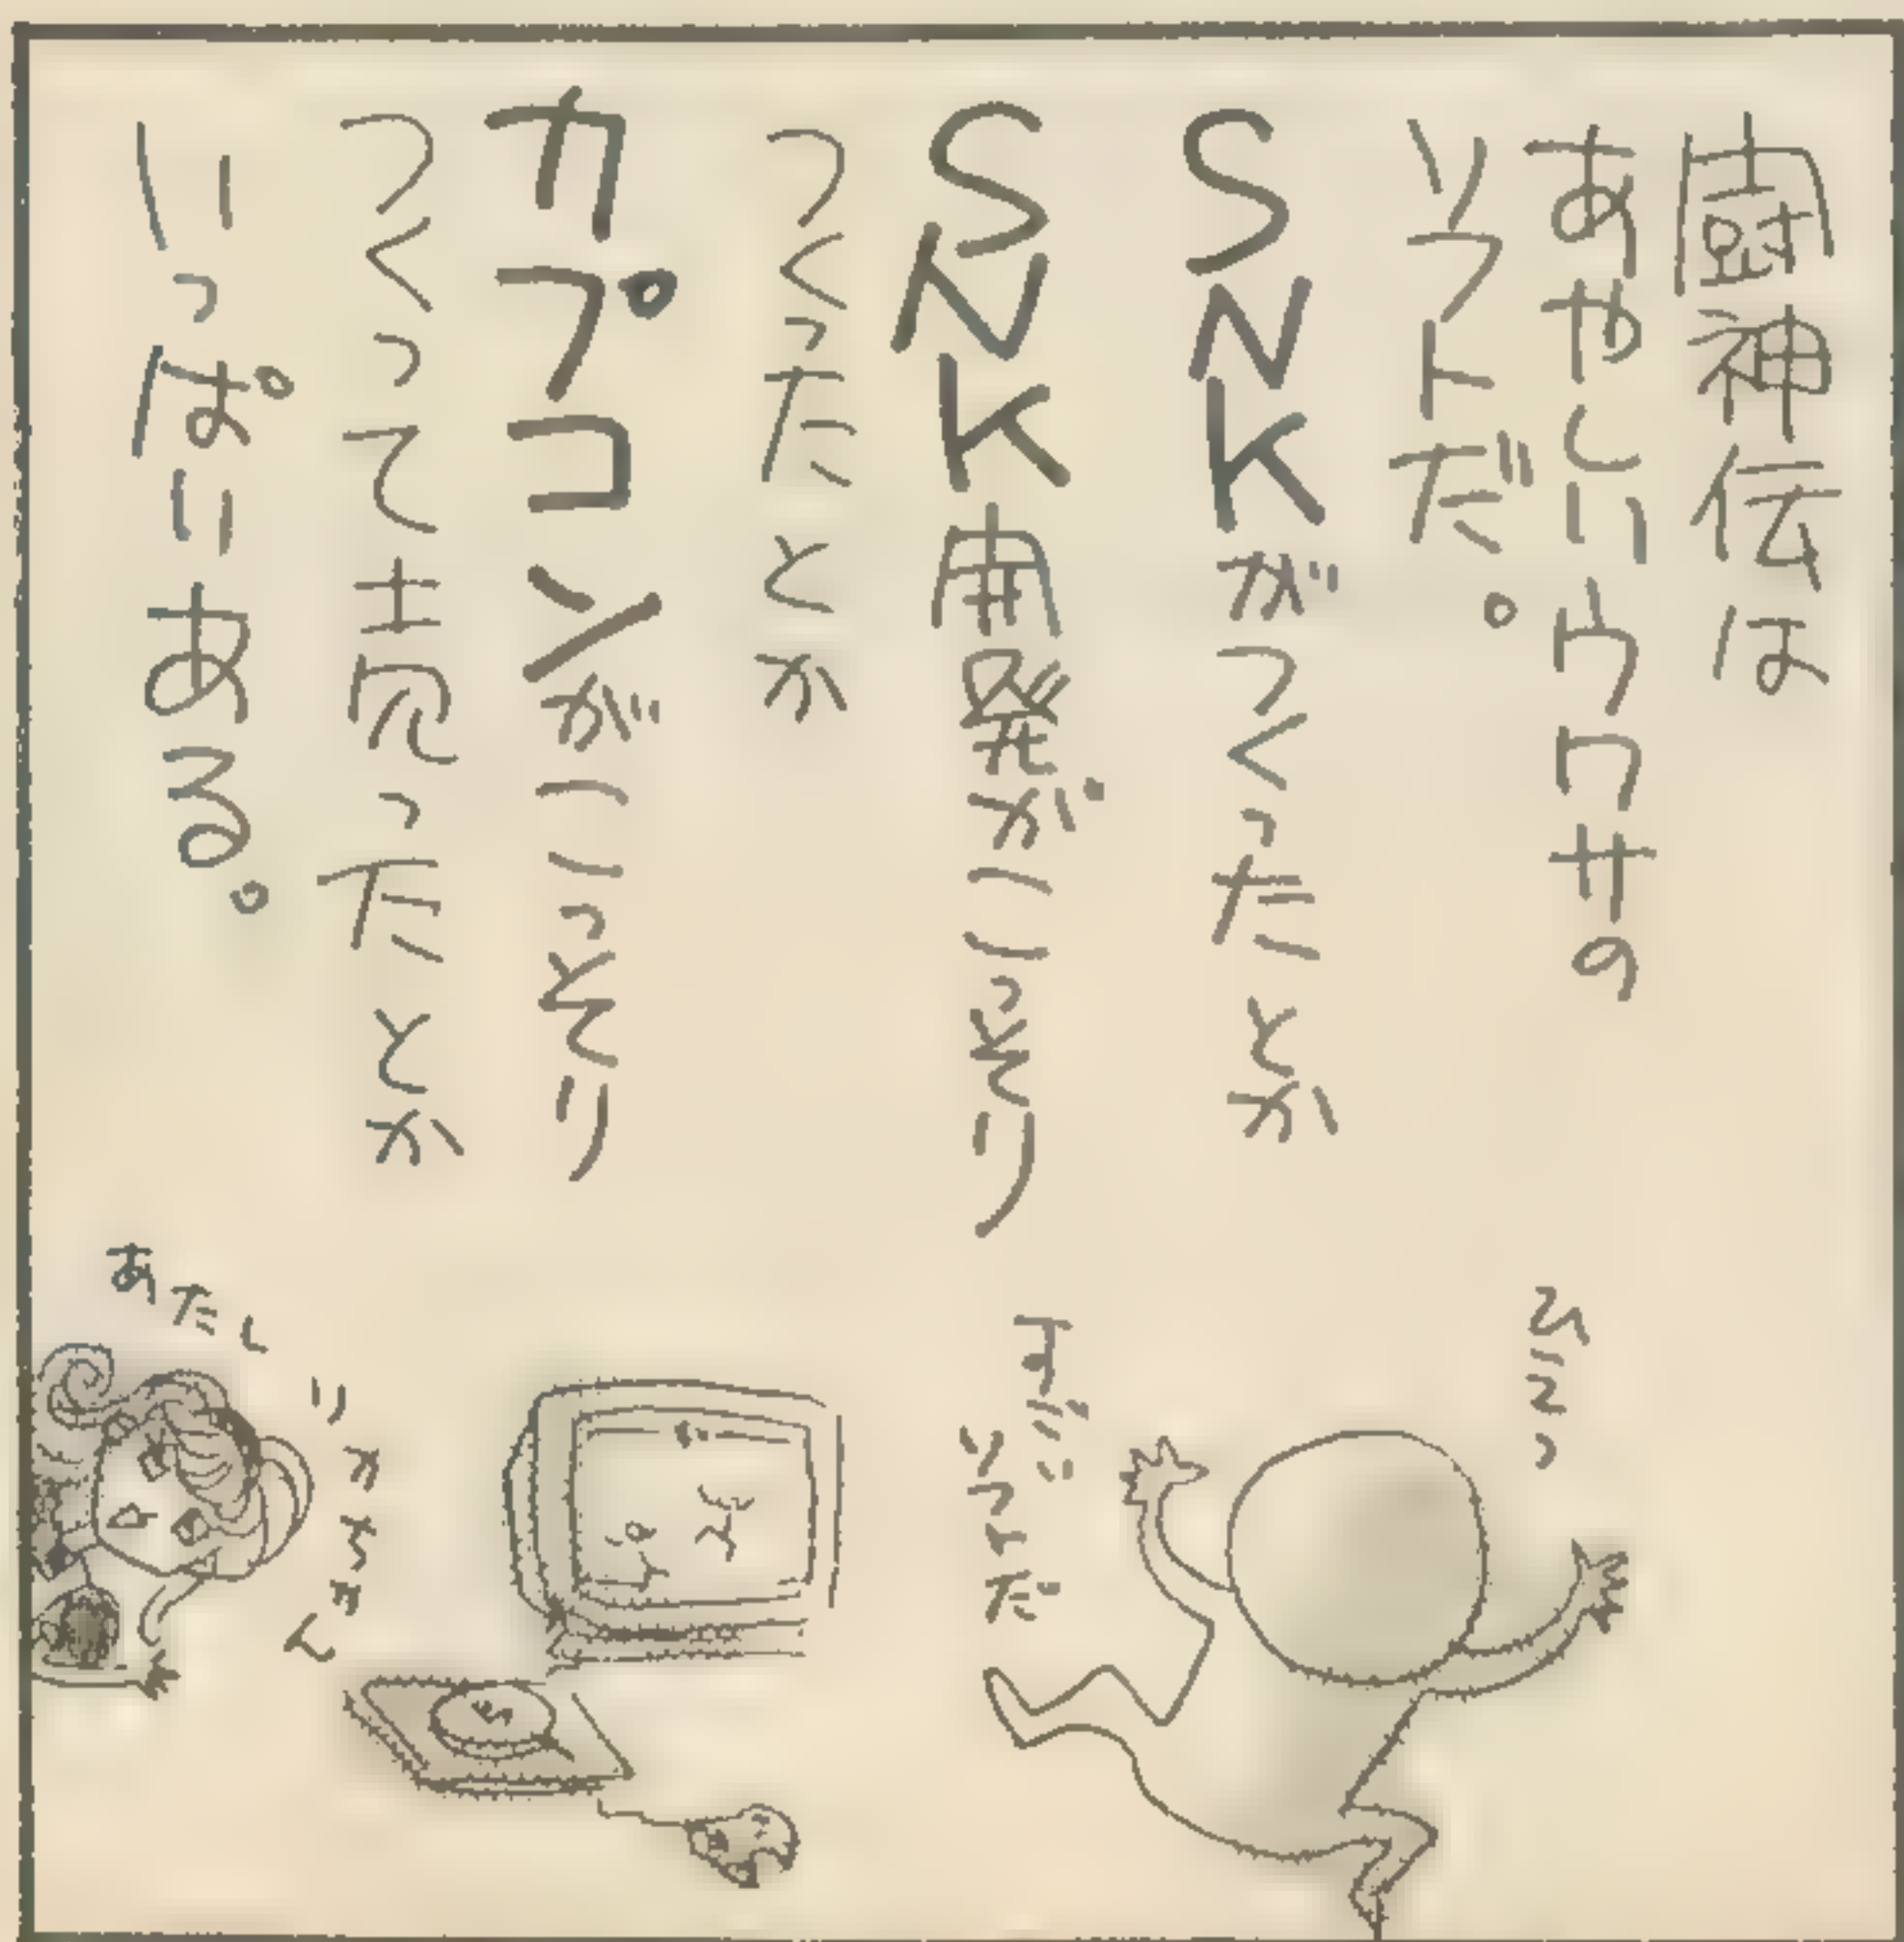 闘神伝は
あやしいウワサの
ソフトだ。
SNKがつくったとか
SNK開発がこっそり
つくったとか
カプコンがこっそり
つくって売ったとか
いっぱいある。
ひこっ
すごい
いつよだ
あたし
りかちゃん